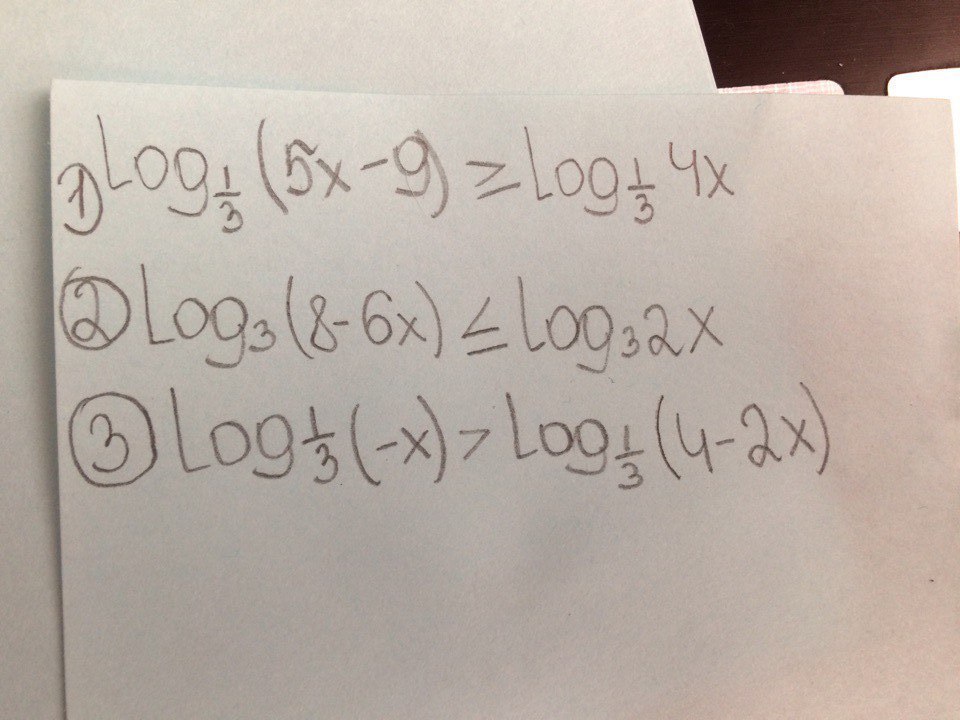 1) Log_{1/3} (5x-9) ≥ Log_{1/3} 4x
② Log_3 (8-6x) ≤ Log_3 2x
③ Log_{1/3} (-x) > Log_{1/3} (4-2x)